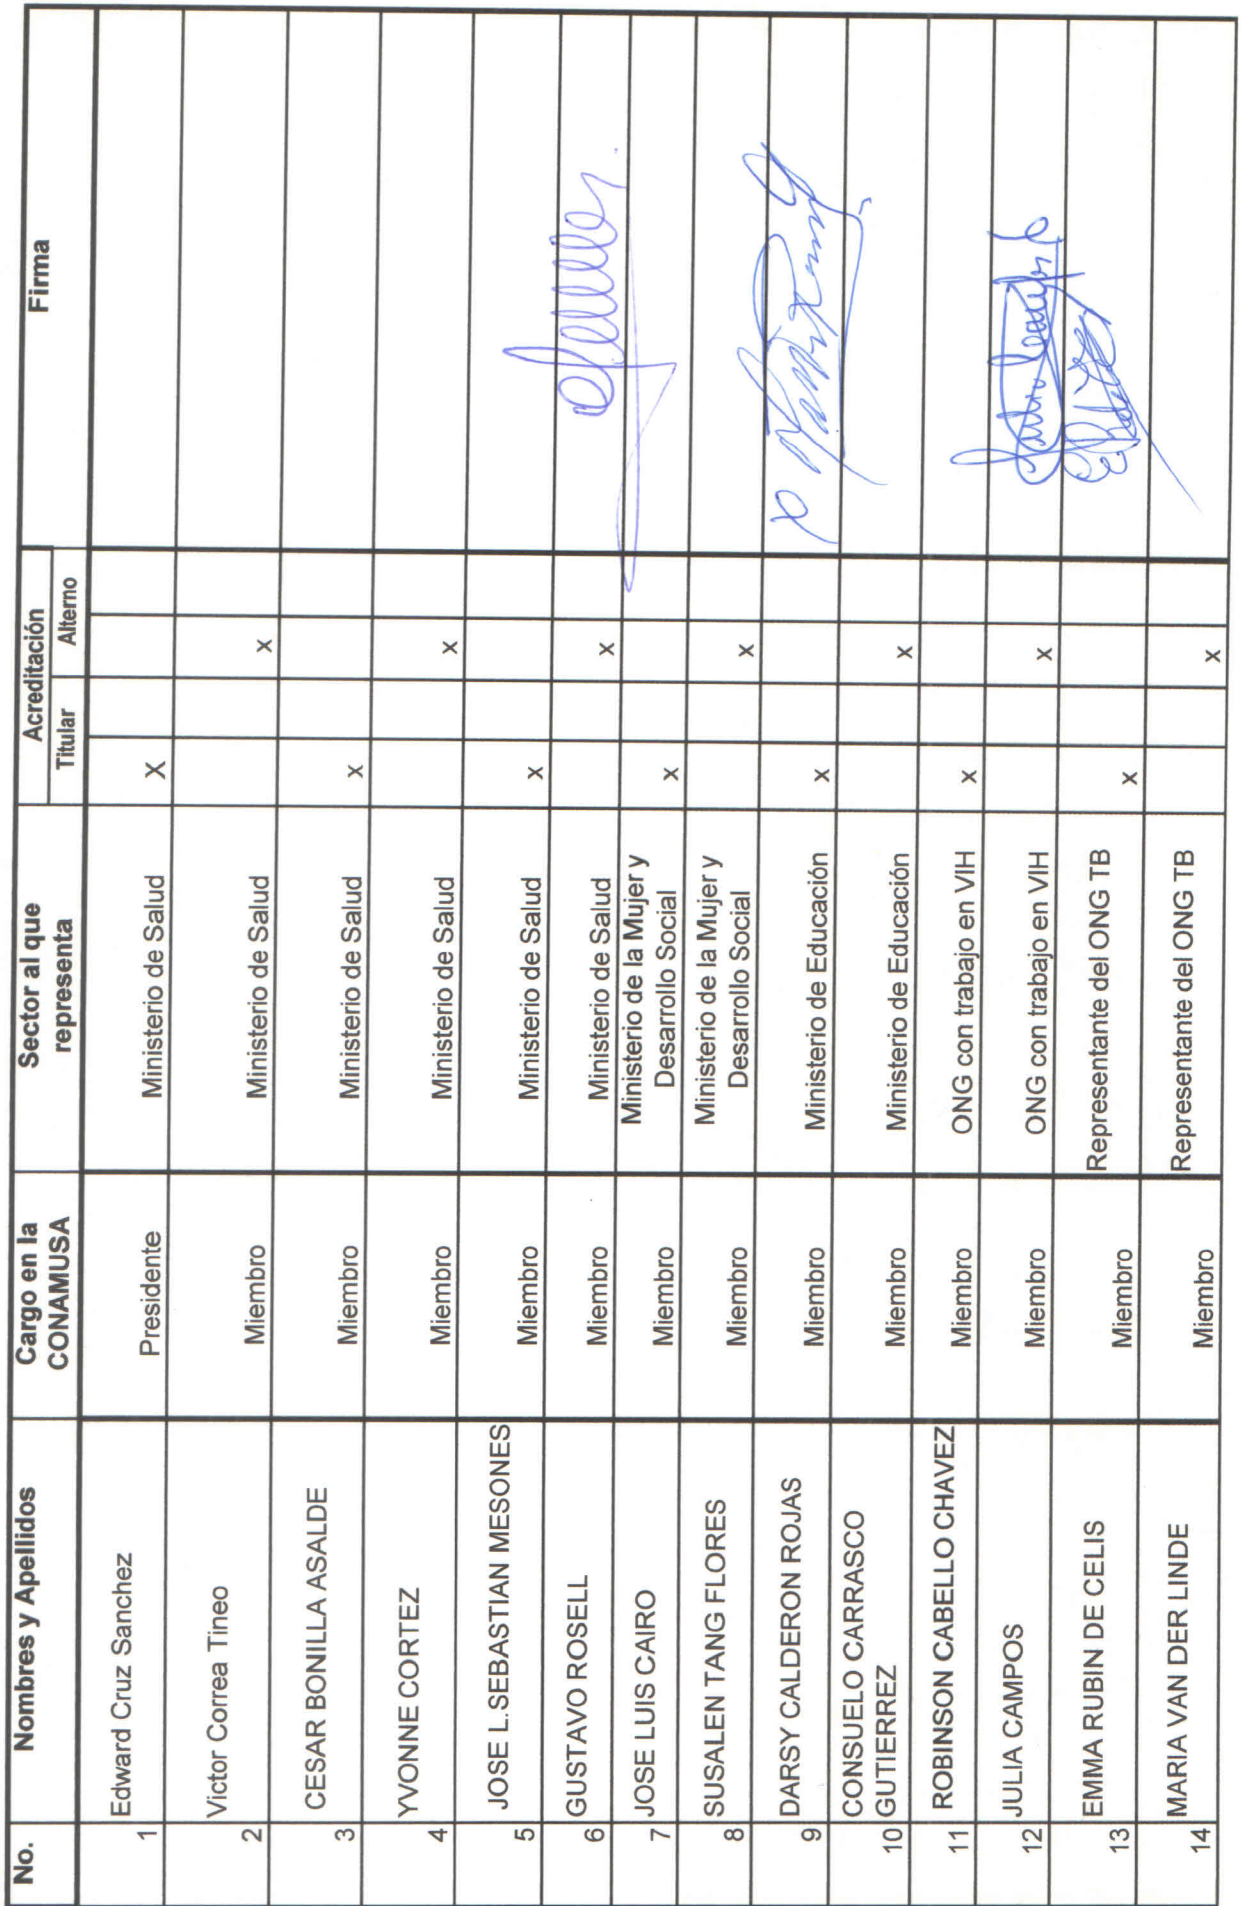 No. Nombres y Apellidos Cargo en la CONAMUSA Sector al que representa Acreditación Firma
Titular Alterno
1 Edward Cruz Sanchez Presidente Ministerio de Salud X
2 Victor Correa Tineo Miembro Ministerio de Salud x
3 CESAR BONILLA ASALDE Miembro Ministerio de Salud x
4 YVONNE CORTEZ Miembro Ministerio de Salud x
5 JOSE L.SEBASTIAN MESONES Miembro Ministerio de Salud x
6 GUSTAVO ROSELL Miembro Ministerio de Salud x
7 JOSE LUIS CAIRO Miembro Ministerio de la Mujer y Desarrollo Social x
8 SUSALEN TANG FLORES Miembro Ministerio de la Mujer y Desarrollo Social x
9 DARSY CALDERON ROJAS Miembro Ministerio de Educación x
10 CONSUELO CARRASCO GUTIERREZ Miembro Ministerio de Educación x
11 ROBINSON CABELLO CHAVEZ Miembro ONG con trabajo en VIH x
12 JULIA CAMPOS Miembro ONG con trabajo en VIH x
13 EMMA RUBIN DE CELIS Miembro Representante del ONG TB x
14 MARIA VAN DER LINDE Miembro Representante del ONG TB x